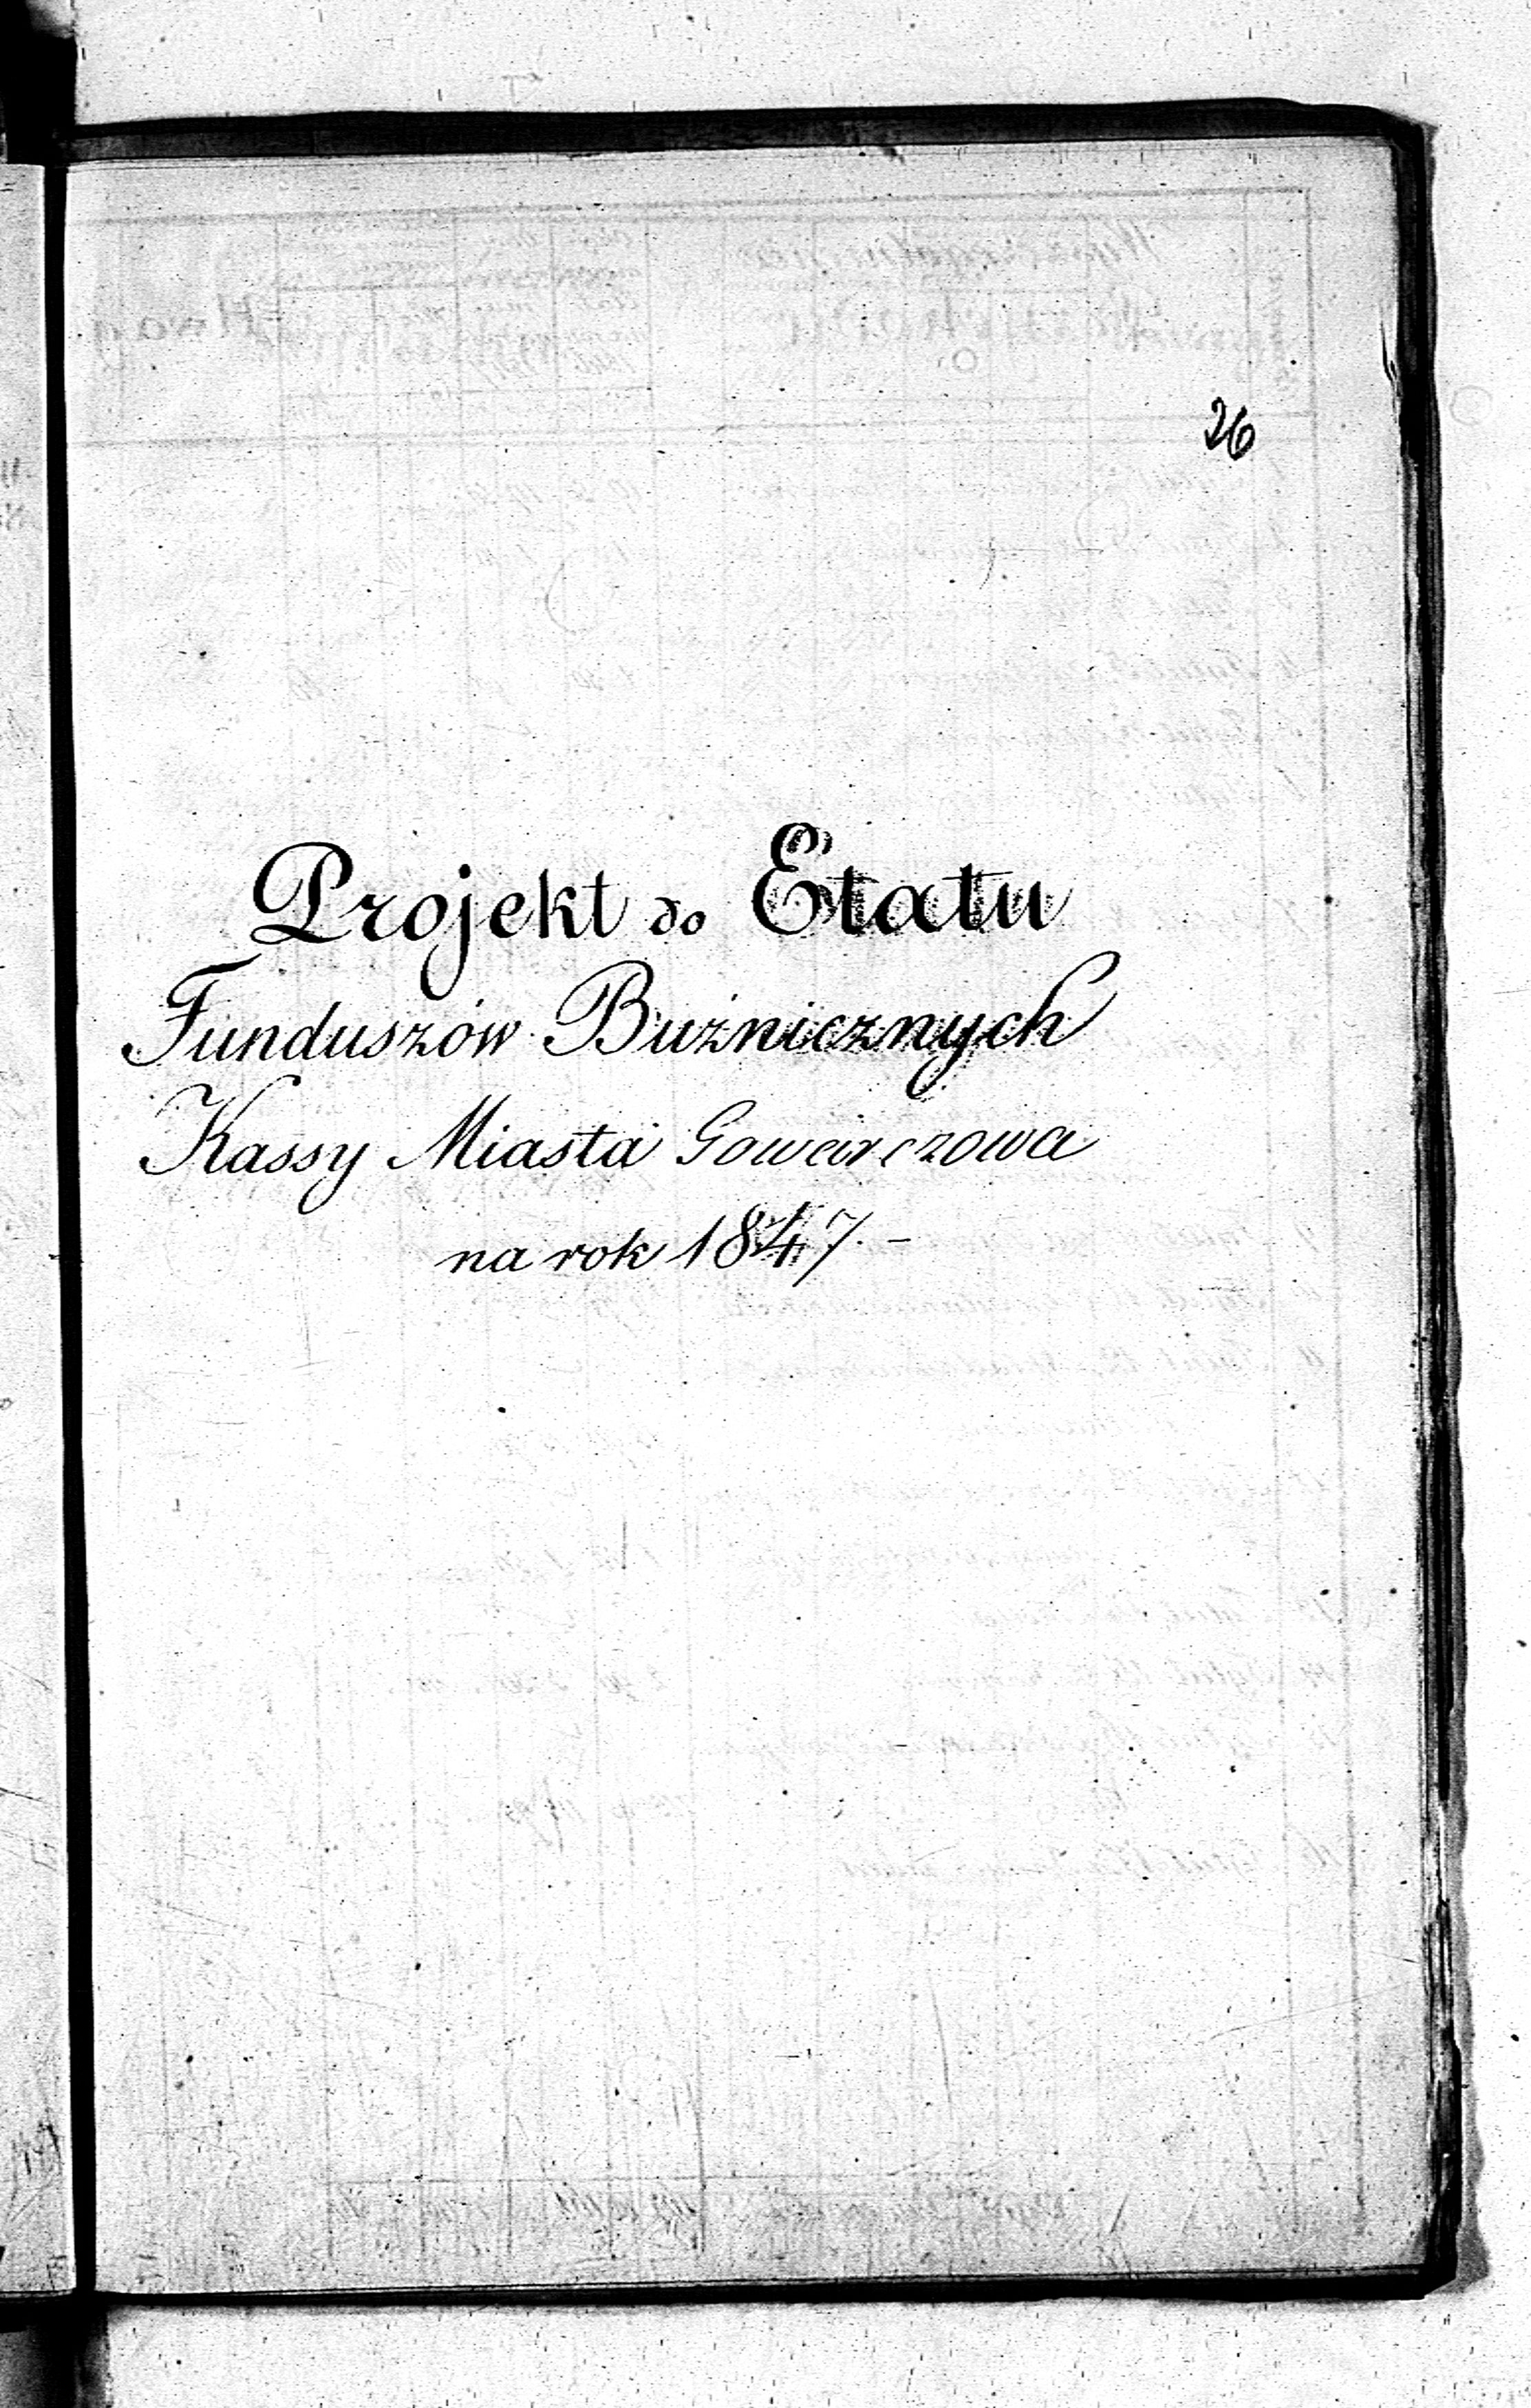 26
Projekt do Etatu
Funduszów Bużnicznych
Kassy Miasta Gowarczowa
na rok 1847. –